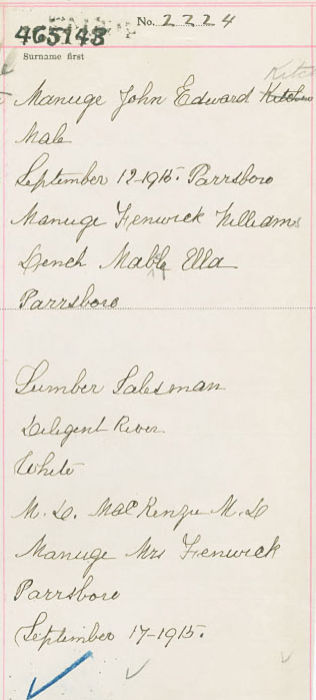 No. 2224
465143
Surname first
Kitch
Manuge John Edward Kitchen
Male
September 12-1915. Parrsboro
Manuge Fenwick Williams
Dench Mable Ella
Parrsboro
Lumber Salesman
Diligent River
White
M. D. MacKenzie M. D
Manuge Mrs Fenwick
Parrsboro
September 17-1915.